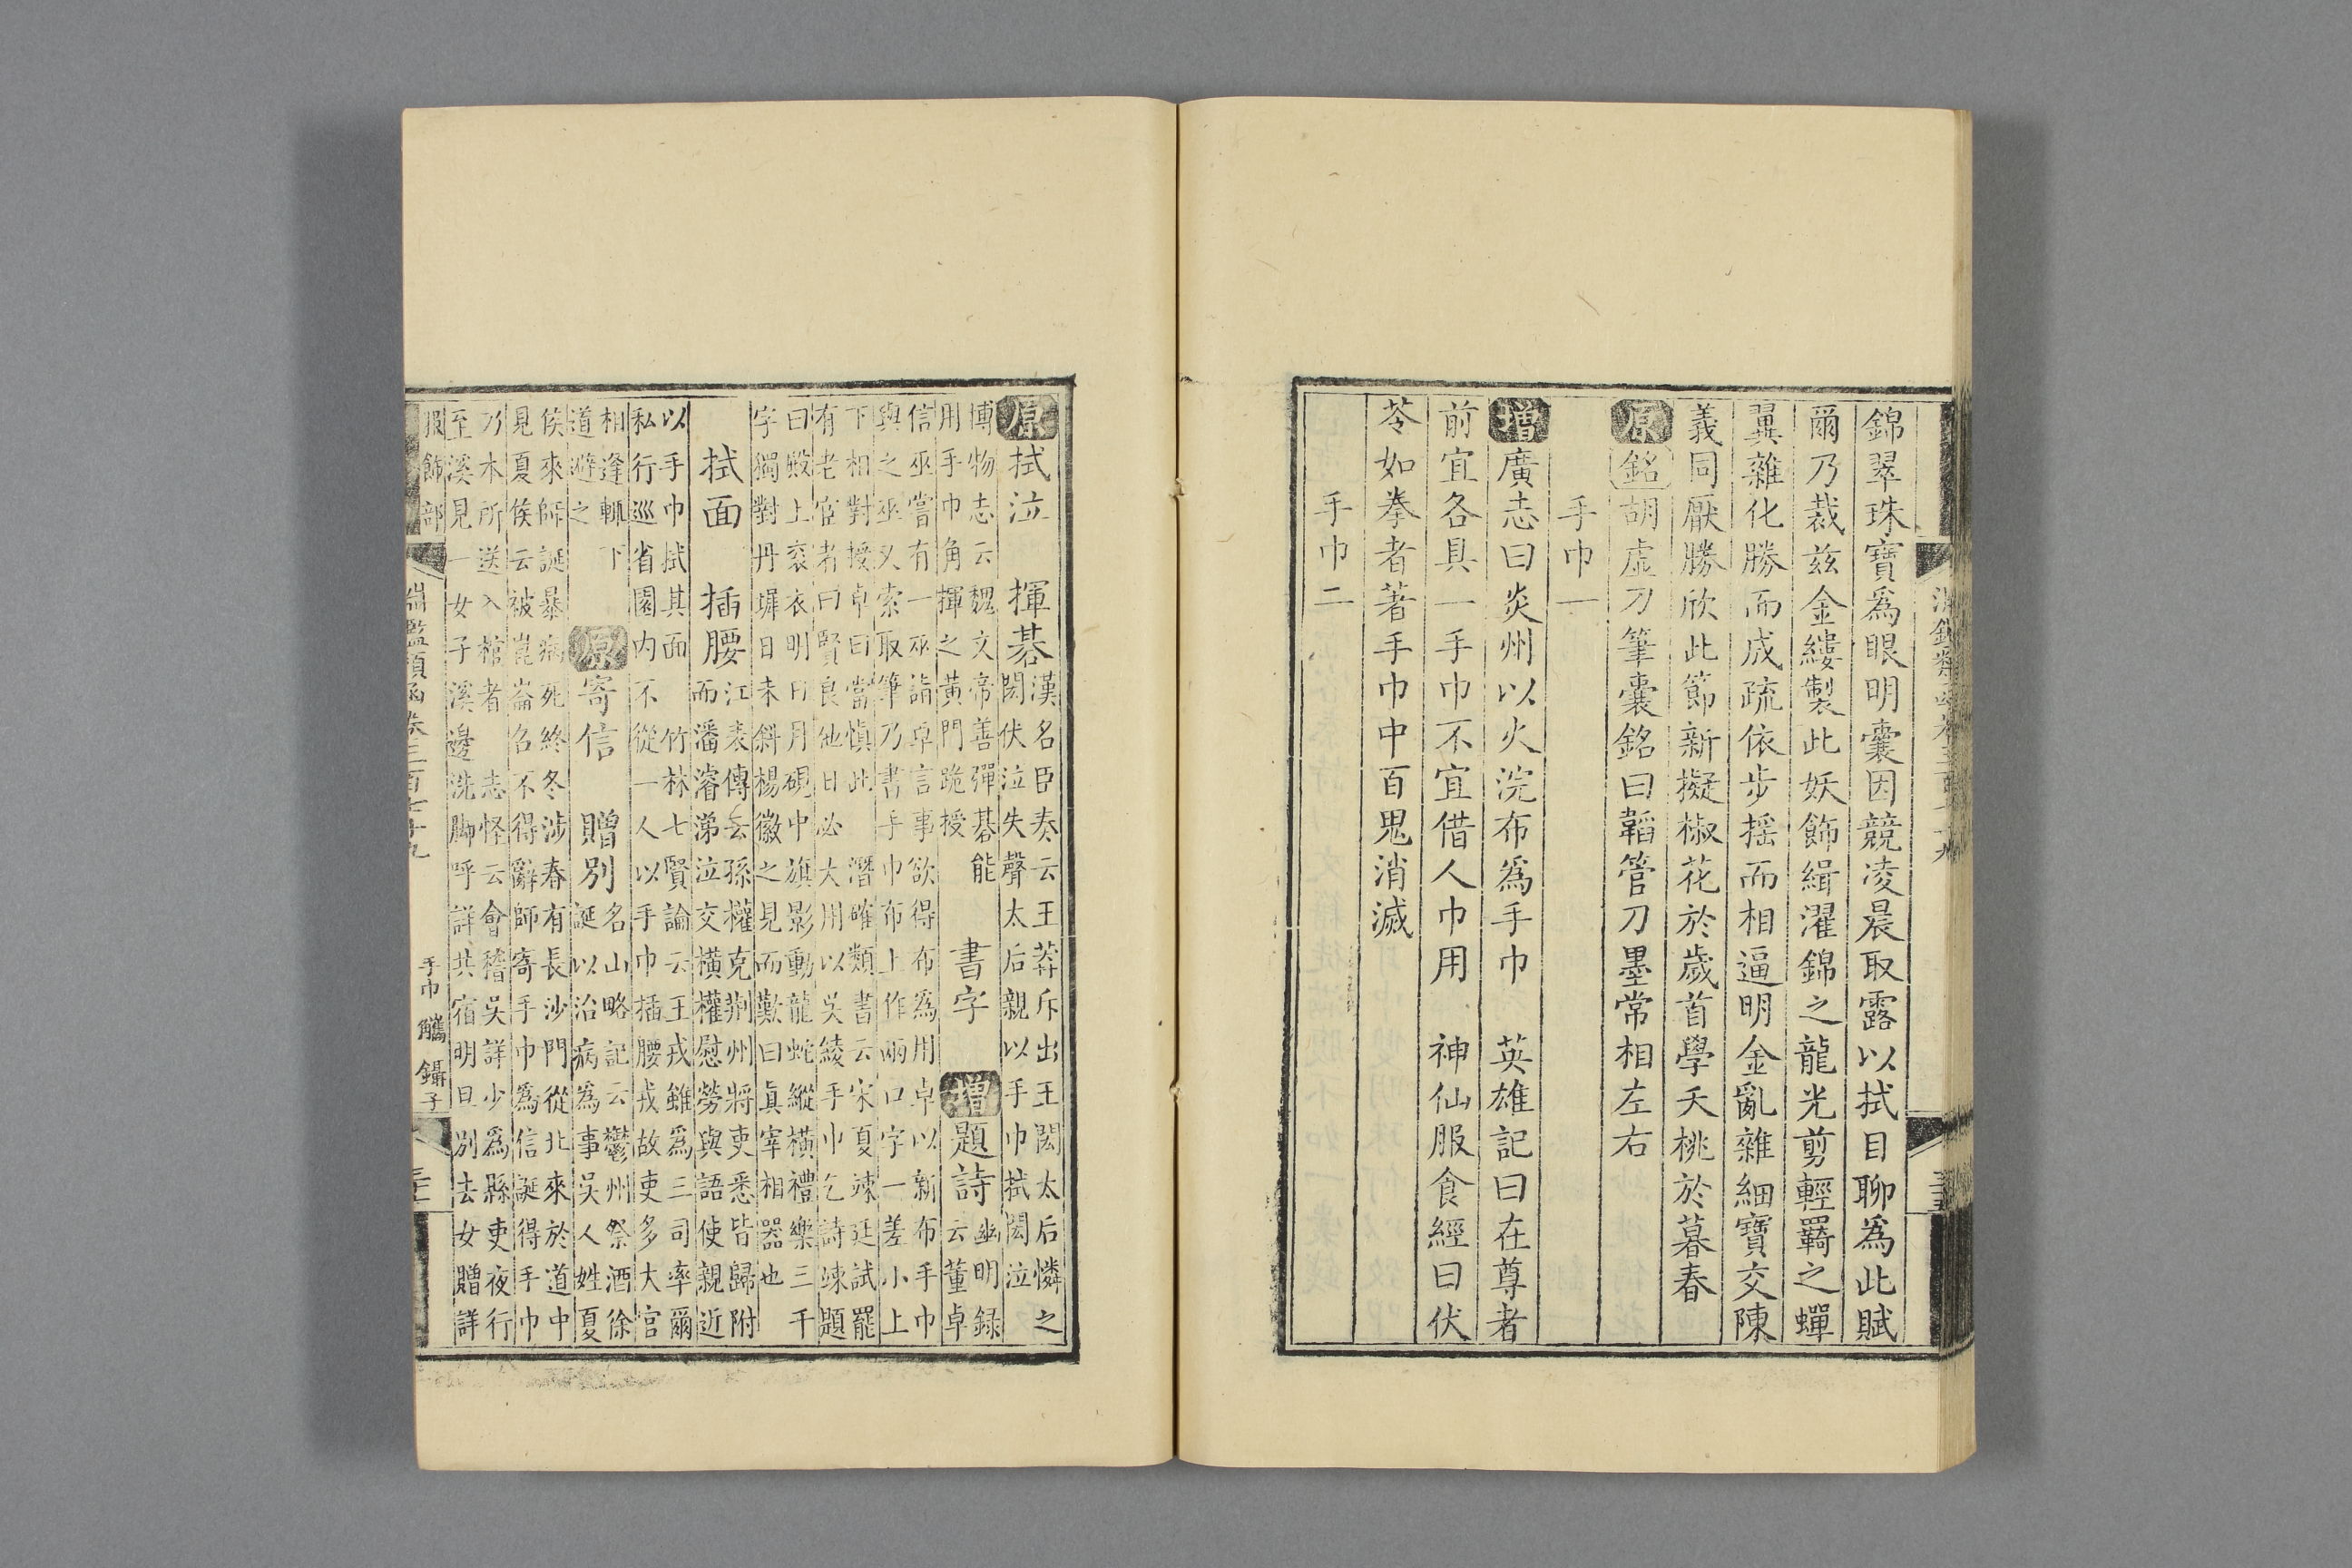 錦翠珠寶爲眼明囊因競凌晨取露以拭目聊爲此賦
爾乃裁兹金縷製此妖飾緝濯錦之龍光剪輕羇之蟬
翼雜化勝而成疏依步搖而相逼明金亂雜細寶交陳
義同厭勝欣此節新擬椒花於歲首學夭桃於暮春
原銘胡虚刀筆囊銘曰韜管刀墨常相左右
手巾一
增廣志曰炎州以火浣布爲手巾 英雄記曰在尊者
前宜各具一手巾不宜借人巾用 神仙服食經曰伏
苓如拳者著手巾中百鬼消滅
手巾二
原拭泣 揮碁
漢名臣奏云王莽斥出王閎太后憐之
閎伏泣失聲太后親以手巾拭閎泣
博物志云魏文帝善彈碁能
用手巾角揮之黃門跪授
書字 增題詩
幽明録
云董卓
信巫嘗有一巫詣卓言事欲得布爲用卓以新布手巾
與之巫又索取筆乃書手巾布上作兩口字一差小上
下相對授卓曰當慎此
有老宦者曰賢良他日必大用以吳綾手巾乞詩竦題
潛確類書云宋夏竦廷試罷
曰殿上衮衣明日月硯中旗影動龍蛇縱橫禮樂三千
字獨對丹墀日未斜楊徽之見而歎曰眞宰相器也
拭面 插腰
江表傳云孫權克荆州將吏悉皆歸附
而潘濬涕泣交橫權慰勞與語使親近
以手巾拭其面
竹林七賢論云王戎雖爲三司率爾
私行巡省園内不從一人以手巾插腰戎故吏多大官
相逢輒下
道避之
原寄信 贈別
名山略記云鬱州祭酒徐
誕以治病爲事吳人姓夏
侯來師誕暴病死終冬涉春有長沙門從北來於道中
見夏侯云被崑崙召不得辭師寄手巾爲信誕得手巾
乃木所送入棺者
志怪云會稽吳詳少爲縣吏夜行
至溪見一女子溪邊洗脚呼詳共宿明旦別去女贈詳
服飾部
淵鑑類函卷三百七十九
手巾 觿 鑷子